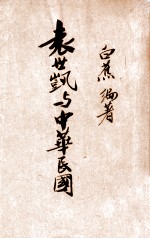 白蕉編著
袁世凱与中華民國